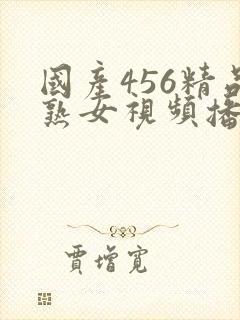 國產456精品
熟女視頻播
賈增寬